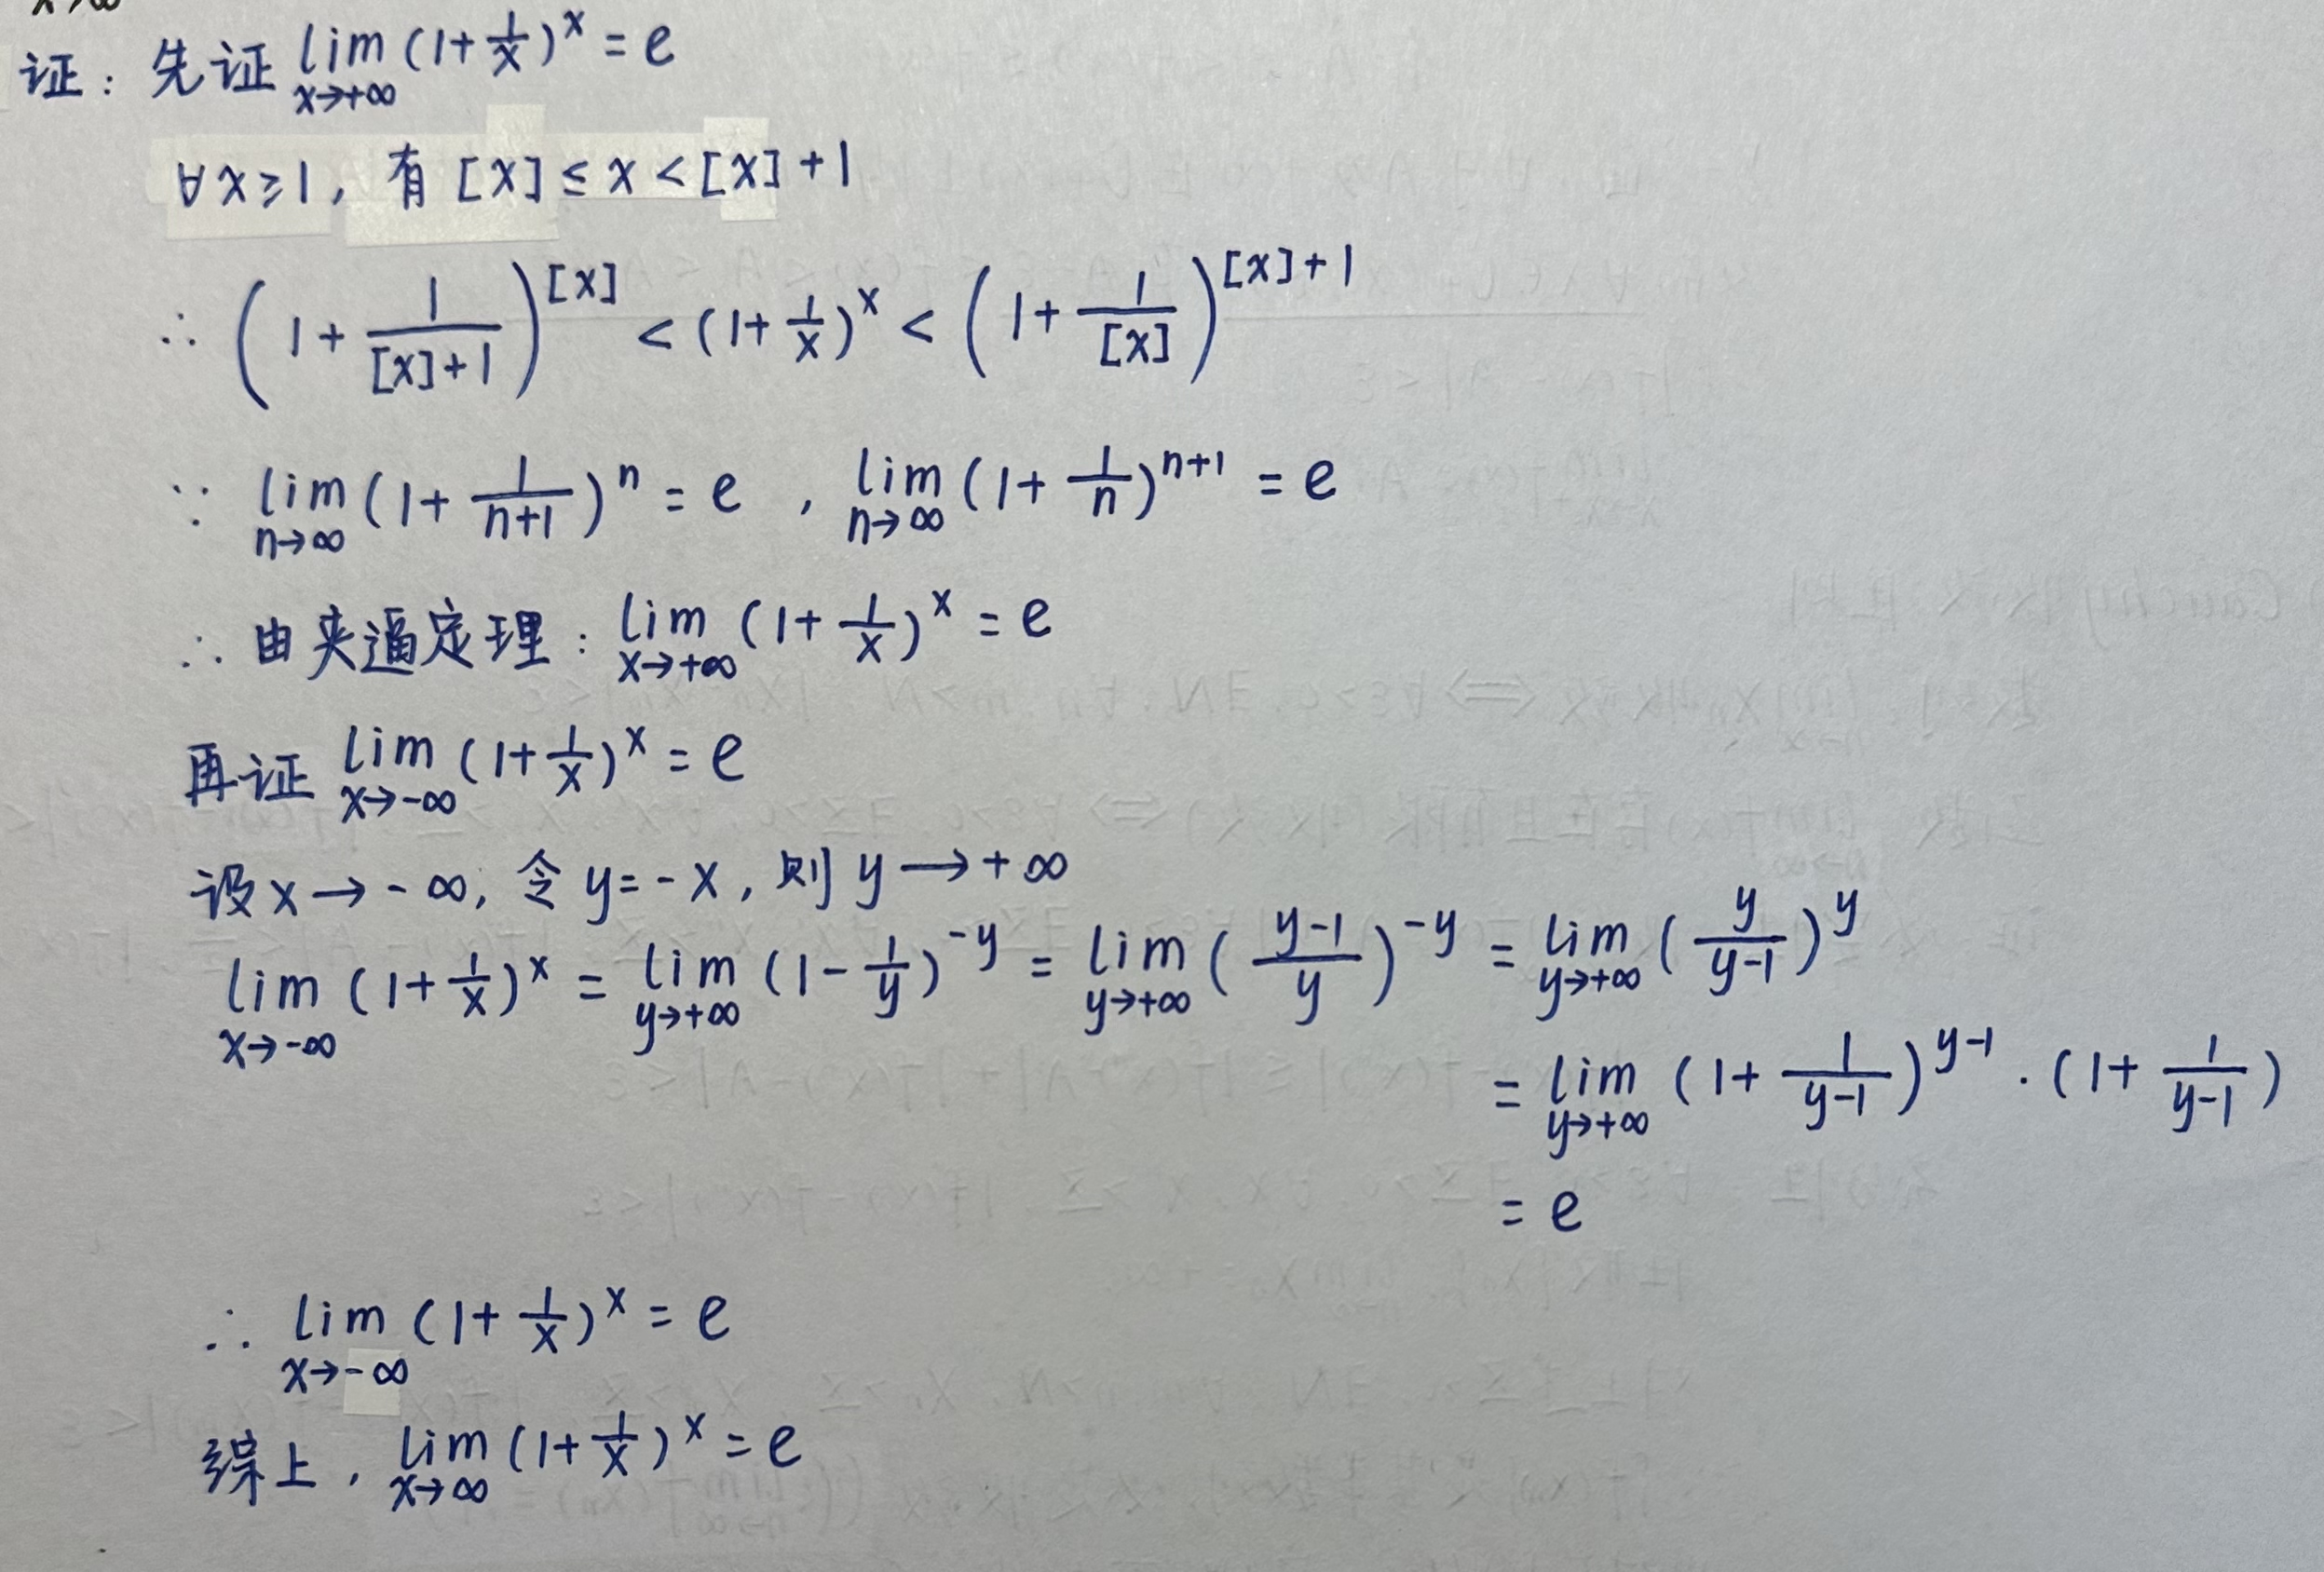 x→∞
证: 先证 lim_{x→+∞} (1+1/x)^x = e
∀x≥1, 有 [x] ≤ x < [x]+1
∴ (1+1/([x]+1))^{[x]} < (1+1/x)^x < (1+1/[x])^{[x]+1}
∵ lim_{n→∞} (1+1/(n+1))^n = e , lim_{n→∞} (1+1/n)^{n+1} = e
∴ 由夹逼定理: lim_{x→+∞} (1+1/x)^x = e
再证 lim_{x→-∞} (1+1/x)^x = e
设x→-∞, 令y=-x, 则y→+∞
lim_{x→-∞} (1+1/x)^x = lim_{y→+∞} (1-1/y)^{-y} = lim_{y→+∞} ((y-1)/y)^{-y} = lim_{y→+∞} (y/(y-1))^y
= lim_{y→+∞} (1+1/(y-1))^{y-1} · (1+1/(y-1))
= e
∴ lim_{x→-∞} (1+1/x)^x = e
综上, lim_{x→∞} (1+1/x)^x = e